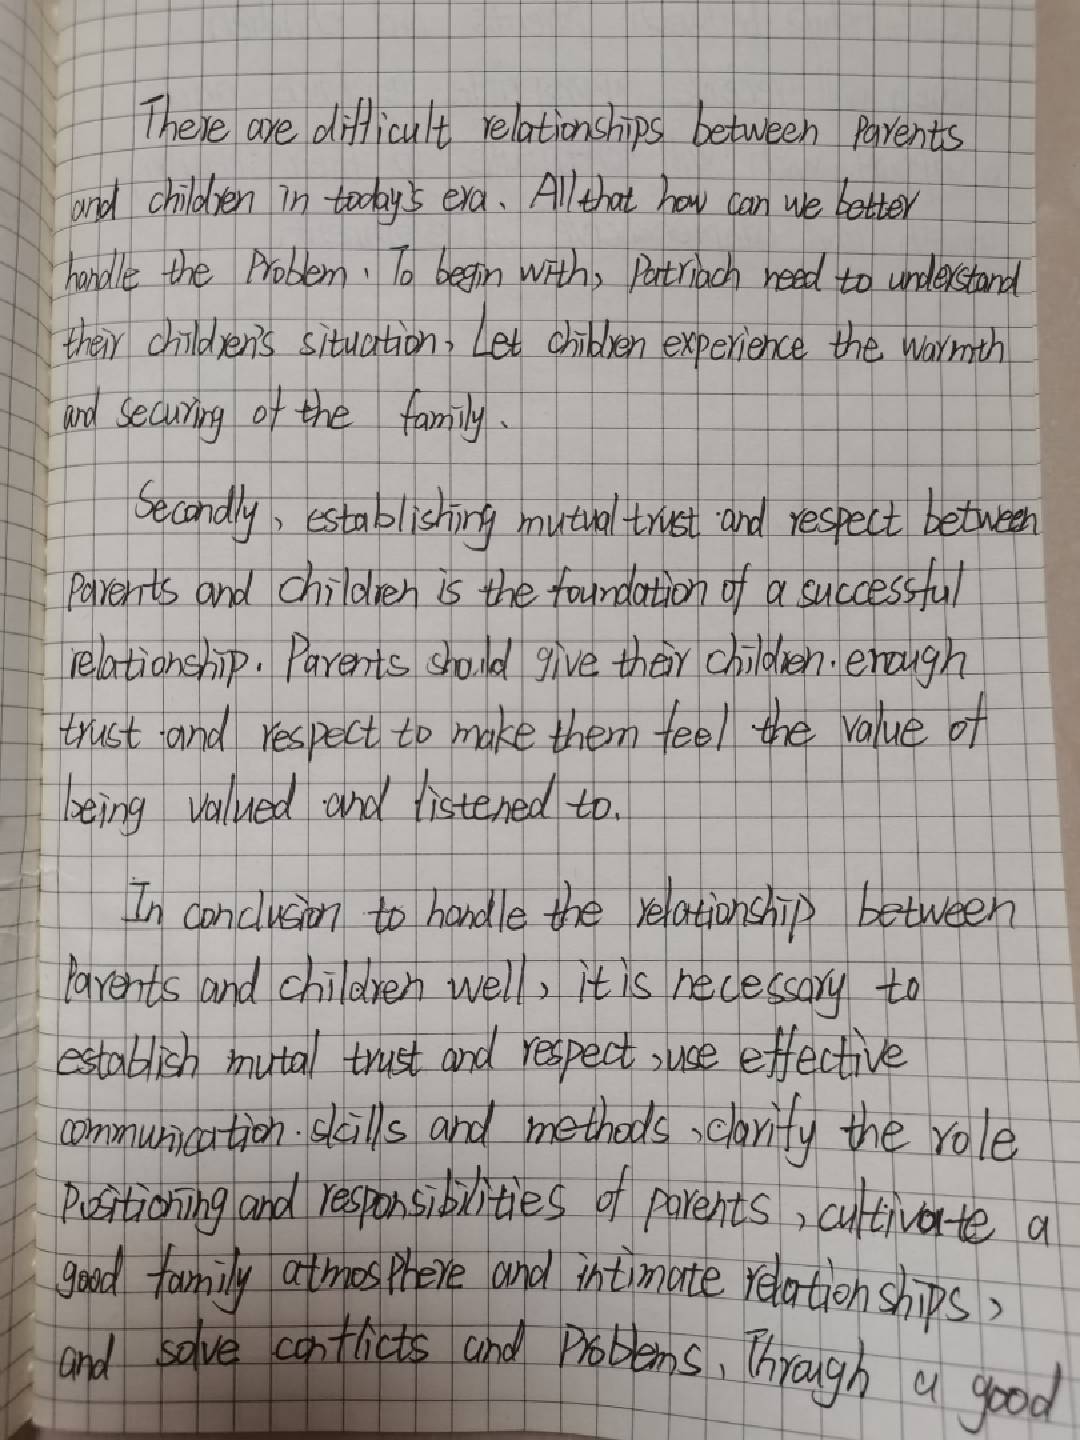 There are difficult relationships between Parents
and children in today's era. All that how can we better
handle the Problem. To begin with, Patriach need to understand
their children's situation, Let children experience the warmth
and securing of the family.
Secondly, establishing mutual trust and respect between
Parents and children is the foundation of a successful
relationship. Parents should give their children enough
trust and respect to make them feel the value of
being valued and listened to.
In conclusion to handle the relationship between
Parents and children well, it is necessary to
establish mutal trust and respect, use effective
communication skills and methods, clarify the role
Positioning and responsibilities of parents, cultivate a
good family atmosphere and intimate relationships,
and solve conflicts and Problems. Through a good